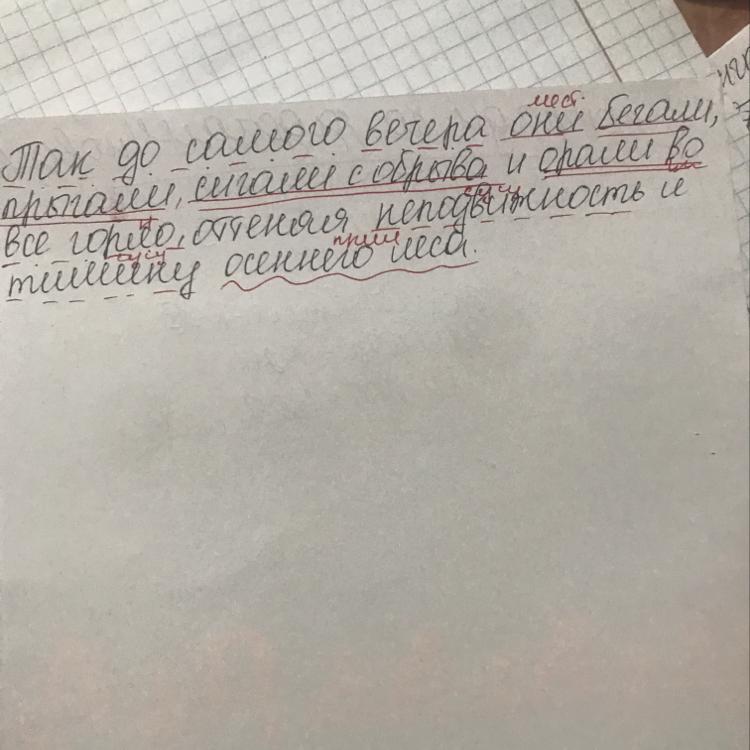 мест
Так до самого вечера они бегали,
прыгали, сигали с обрыва и орали во
сущ
все горло, оттеняя неподвижность и
сущ прил
тишину осеннего леса.